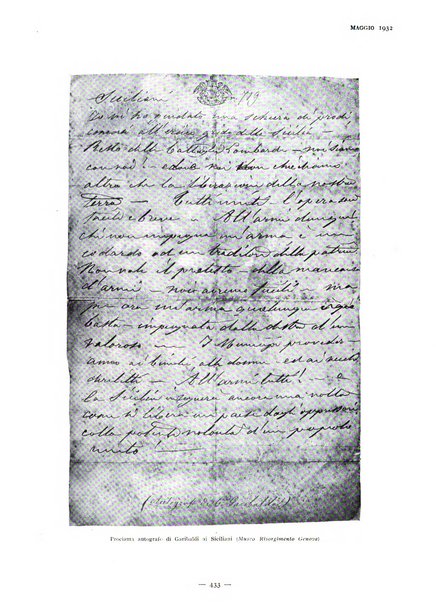 MAGGIO 1932
Siciliani
Io vi ho guidato una schiera di prodi
accorsi all'eroico grido della Sicilia —
Resto delle battaglie Lombarde — noi siamo
con voi! e noi non chiediamo
altro che la liberazione della nostra
terra — Tutti uniti l'opera sarà
facile e breve — All'armi dunque!
chi non impugna un'arma è un
codardo od un traditore della patria
Non vale il pretesto della mancanza
d'armi — noi avremo fucili — ma
per ora un'arma qualunque
basta — impugnata dalla destra d'un
valoroso — I Municipi provvede-
ranno ai bimbi, alle donne ed ai vecchi
derelitti — All'armi tutti! —
la Sicilia insegnerà ancora una volta
come si libera un paese dagli oppressori
colla potente volontà d'un popolo
unito —
(Autografo di G. Garibaldi)
Proclama autografo di Garibaldi ai Siciliani (Museo Risorgimento Genova)
— 433 —